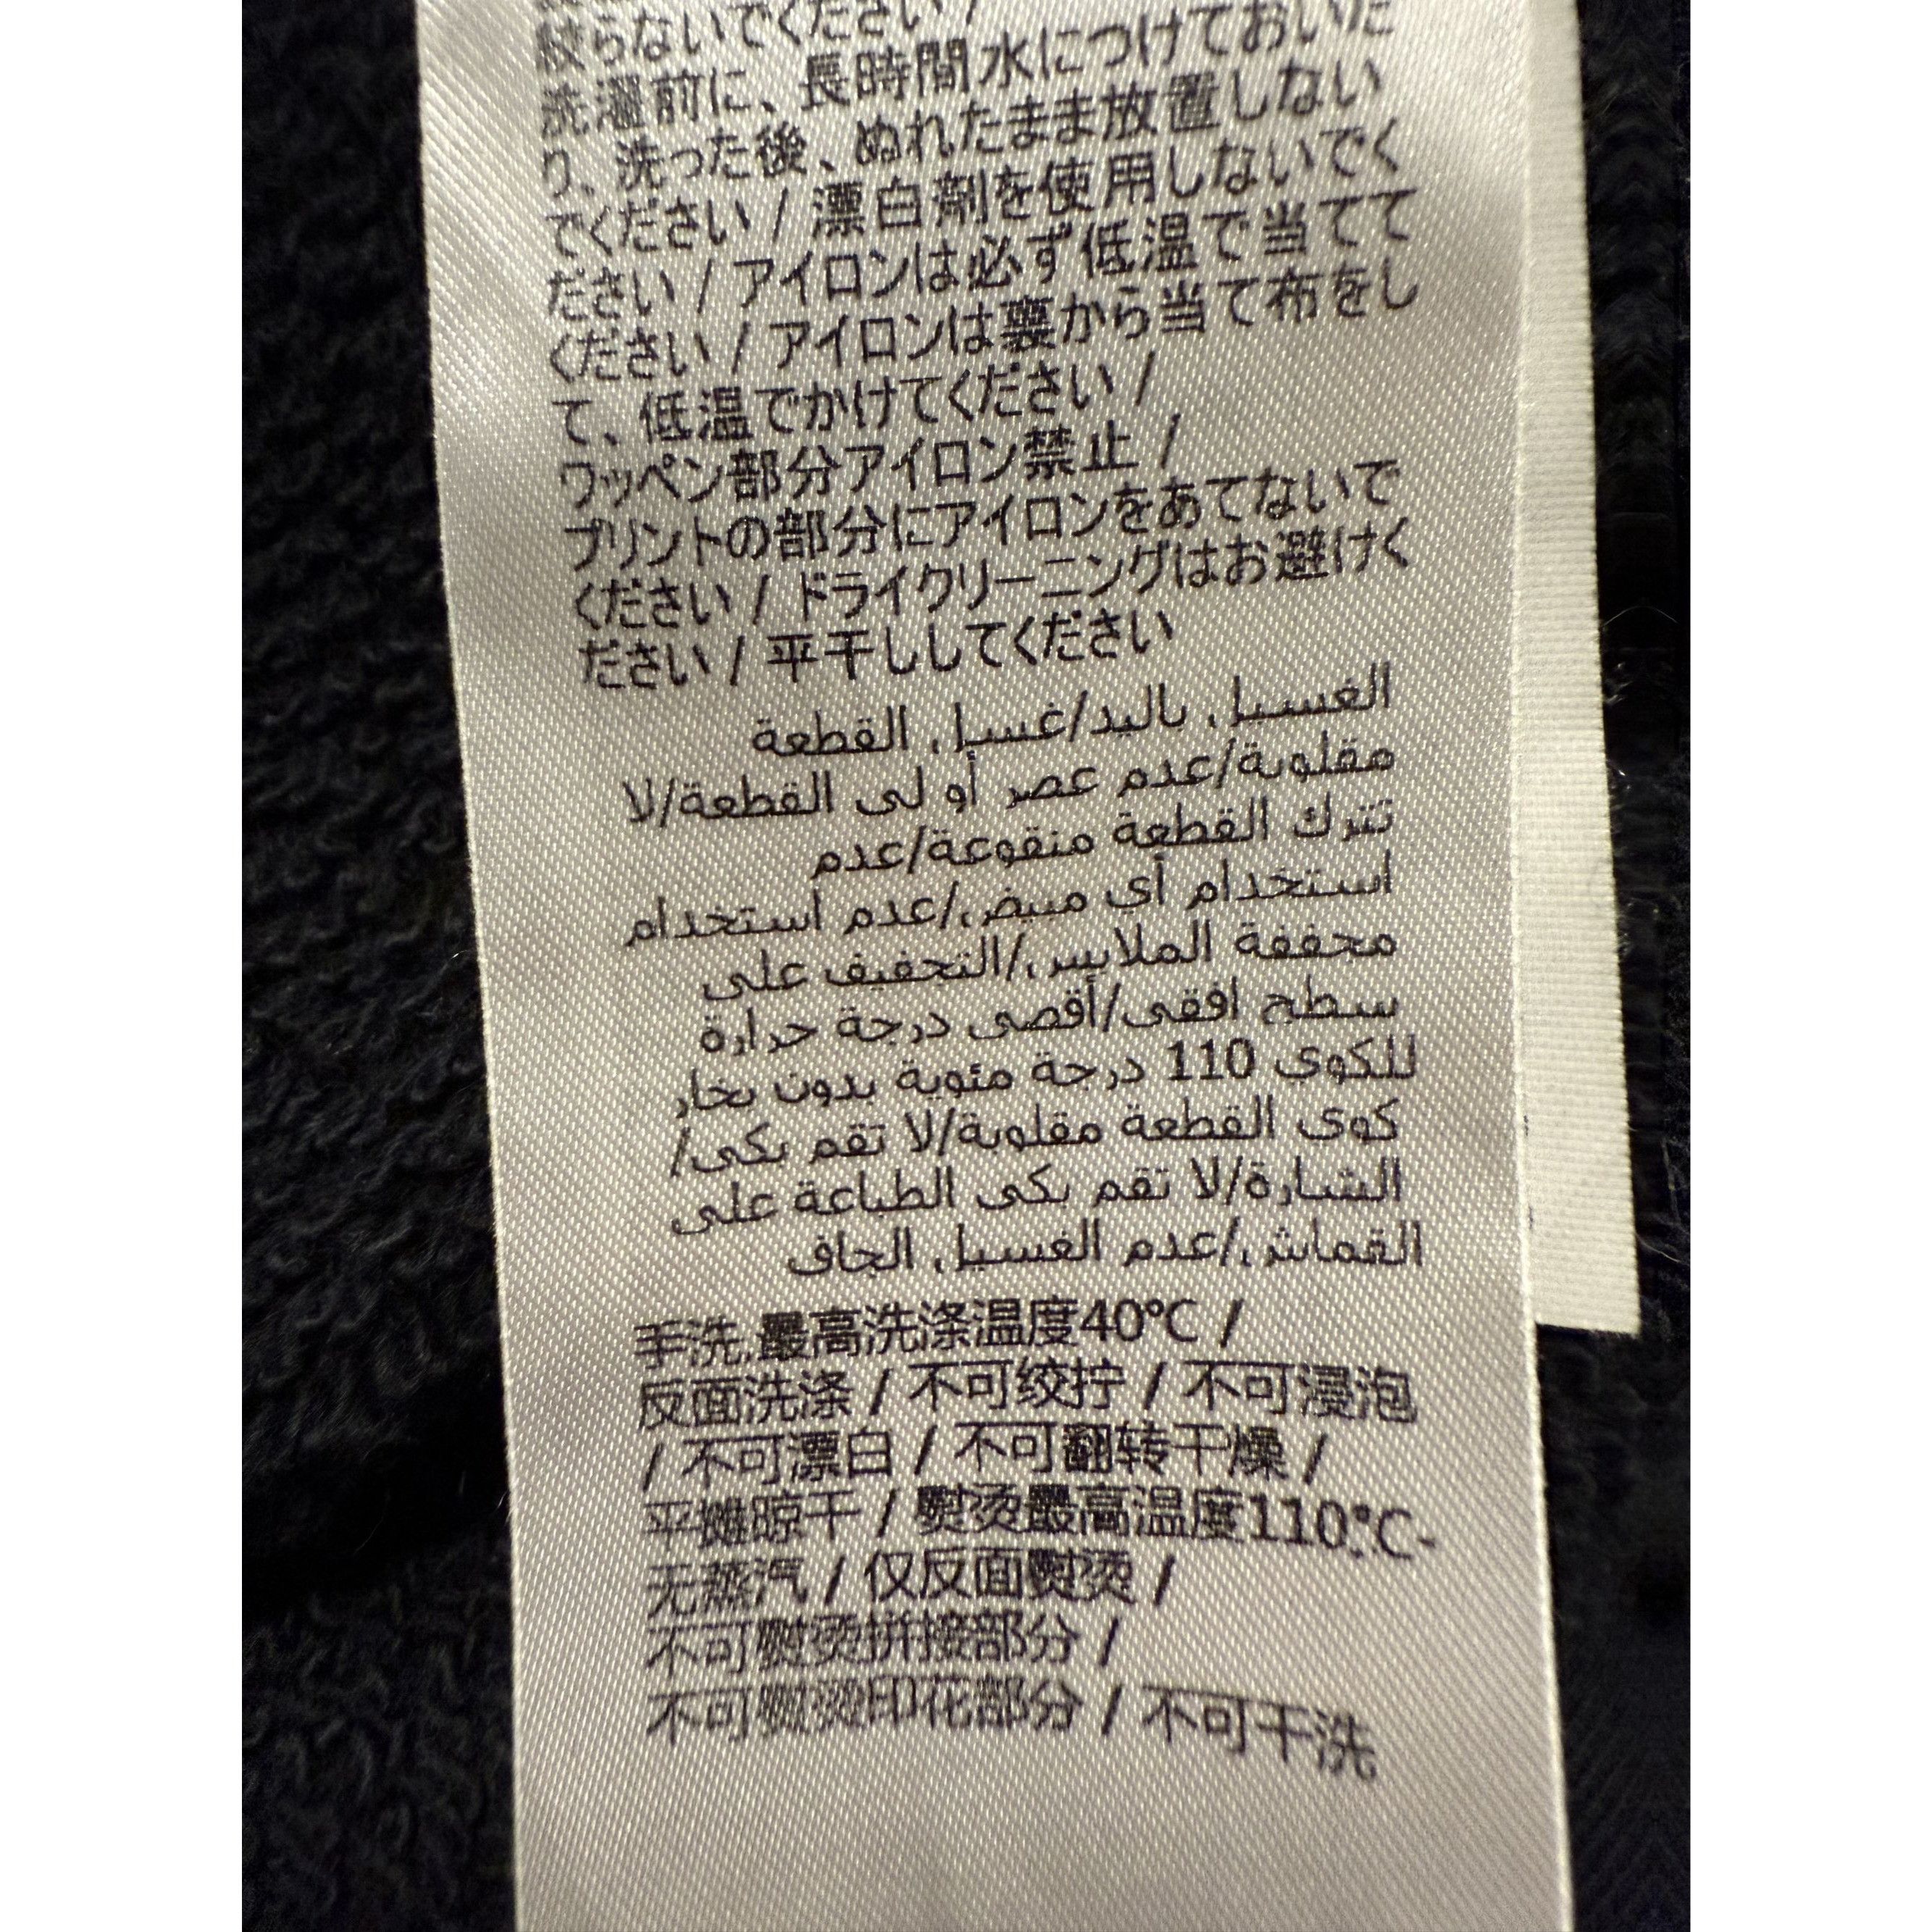 絞らないでください /
洗濯前に、長時間水につけておいた
り、洗った後、ぬれたまま放置しない
でください / 漂白剤を使用しないでく
ださい / アイロンは必ず低温で当てて
ください / アイロンは裏から当て布をし
て、低温でかけてください /
ワッペン部分アイロン禁止 /
プリントの部分にアイロンをあてないで
ください / ドライクリーニングはお避けく
ださい / 平干ししてください
الغسيل باليد/غسيل القطعة
مقلوبة/عدم عصر أو لي القطعة/لا
تترك القطعة منقوعة/عدم
استخدام أي مبيض/عدم استخدام
مجففة الملابس/التجفيف على
سطح افقي/أقصى درجة حرارة
للكوي 110 درجة مئوية بدون بخار
كوي القطعة مقلوبة/لا تقم بكي/
الشارة/لا تقم بكي الطباعة على
القماش/عدم الغسيل الجاف
手洗,最高洗涤温度40°C /
反面洗涤 / 不可绞拧 / 不可浸泡
/ 不可漂白 / 不可翻转干燥 /
平摊晾干 / 熨烫最高温度110°C-
无蒸汽 / 仅反面熨烫 /
不可熨烫拼接部分 /
不可熨烫印花部分 / 不可干洗